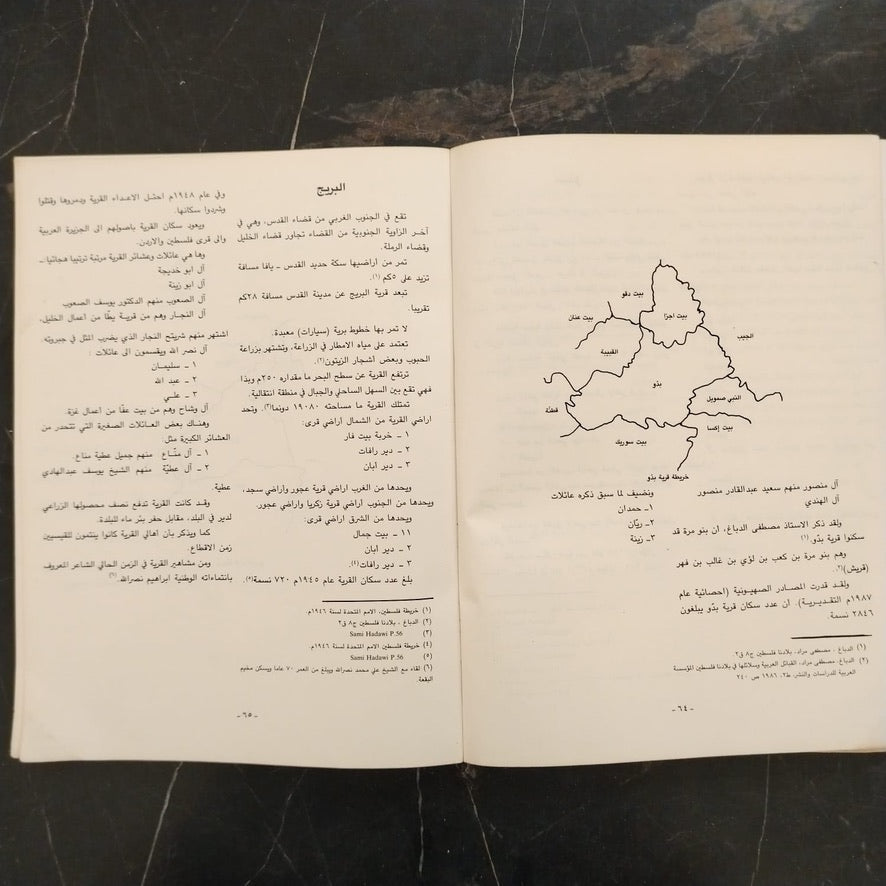 بيت دقو
بيت اجزا
بيت عنان
الجيب
القبيبة
بدّو
النبي صمويل
قطنّة
بيت إكسا
بيت سوريك
خريطة قرية بدّو
آل منصور منهم سعيد عبدالقادر منصور
آل الهندي
ولقد ذكر الاستاذ مصطفى الدباغ، ان بنو مرة قد
سكنوا قرية بدّو.(١)
وهم بنو مرة بن كعب بن لؤي بن غالب بن فهر
(قريش)(٢).
ولقد قدرت المصادر الصهيونية (احصائية عام
١٩٨٧م التقديرية). ان عدد سكان قرية بدّو يبلغون
٢٨٤٦ نسمة.
ونضيف لما سبق ذكره عائلات
١ـ حمدان
٢ـ ريّان
٣ـ زينة
(١) الدباغ . مصطفى مراد، بلادنا فلسطين ج٨ ق٢.
(٢) الدباغ، مصطفى مراد، القبائل العربية وسلائلها في بلادنا فلسطين المؤسسة
العربية للدراسات والنشر، ط٢، ١٩٨٦ ص ٢٤٠
- ٦٤ -
البريج
تقع في الجنوب الغربي من قضاء القدس، وهي في
آخر الزاوية الجنوبية من القضاء تجاور قضاء الخليل
وقضاء الرملة.
تمر من اراضيها سكة حديد القدس ـ يافا مسافة
تزيد على ٥كم (١).
تبعد قرية البريج عن مدينة القدس مسافة ٢٨كم
تقريبا.
لا تمر بها خطوط برية (سيارات) معبدة.
تعتمد على مياه الامطار في الزراعة، وتشتهر بزراعة
الحبوب وبعض أشجار الزيتون(٢).
ترتفع القرية عن سطح البحر ما مقداره ٢٥٠م وبذا
فهي تقع بين السهل الساحلي والجبال في منطقة انتقالية.
تمتلك القرية ما مساحته ١٩٠٨٠ دونما(٣). وتحد
اراضي القرية من الشمال اراضي قرى:
١ ـ خربة بيت فار
٢ ـ دير رافات
٣ ـ دير آبان
ويحدها من الغرب اراضي قرية عجور واراضي سجد،
ويحدها من الجنوب اراضي قرية زكريا واراضي عجور.
ويحدها من الشرق اراضي قرى:
١١ ـ بيت جمال
٢ ـ دير آبان
٣ ـ دير رافات(٤).
بلغ عدد سكان القرية عام ١٩٤٥م ٧٢٠ نسمة(٥).
وفي عام ١٩٤٨م احتل الاعداء القرية ودمروها وقتلوا
وشردوا سكانها.
ويعود سكان القرية باصولهم الى الجزيرة العربية
والى قرى فلسطين والاردن.
وها هي عائلات وعشائر القرية مرتبة ترتيبا هجائيا:ـ
آل ابو خديجة
آل ابو زينة
آل الصعوب منهم الدكتور يوسف الصعوب
آل النجار وهم من قرية يطّا من أعمال الخليل،
اشتهر منهم شريتح النجار الذي يضرب المثل في جبروته.
آل نصر الله ويقسمون الى عائلات :
١ ـ سليمان
٢ ـ عبد الله
٣ ـ علي
آل وشاح وهم من بيت عفّا من أعمال غزة.
وهناك بعض العائلات الصغيرة التي تتحدر من
العشائر الكبيرة مثل:
١ ـ آل منّاع منهم جميل عطية مناع.
٢ ـ آل عطيّة منهم الشيخ يوسف عبدالهادي
عطية.
وقد كانت القرية تدفع نصف محصولها الزراعي
لدير في البلد، مقابل حفر بئر ماء للبلدة.
كما ويذكر بأن اهالي القرية كانوا ينتمون للقيسيين
زمن الاقطاع.
ومن مشاهير القرية في الزمن الحالي الشاعر المعروف
بانتماءاته الوطنية ابراهيم نصرالله.(٦)
(١) خريطة فلسطين، الامم المتحدة لسنة ١٩٤٦م.
(٢) الدباغ ، بلادنا فلسطين ج٨ ق٢
(٣) Sami Hadawi P.56
(٤) خريطة فلسطين الامم المتحدة لسنة ١٩٤٦م.
(٥) Sami Hadawi P.56
(٦) لقاء مع الشيخ علي محمد نصرالله ويبلغ من العمر ٧٠ عاما ويسكن مخيم
البقعة.
- ٦٥ -